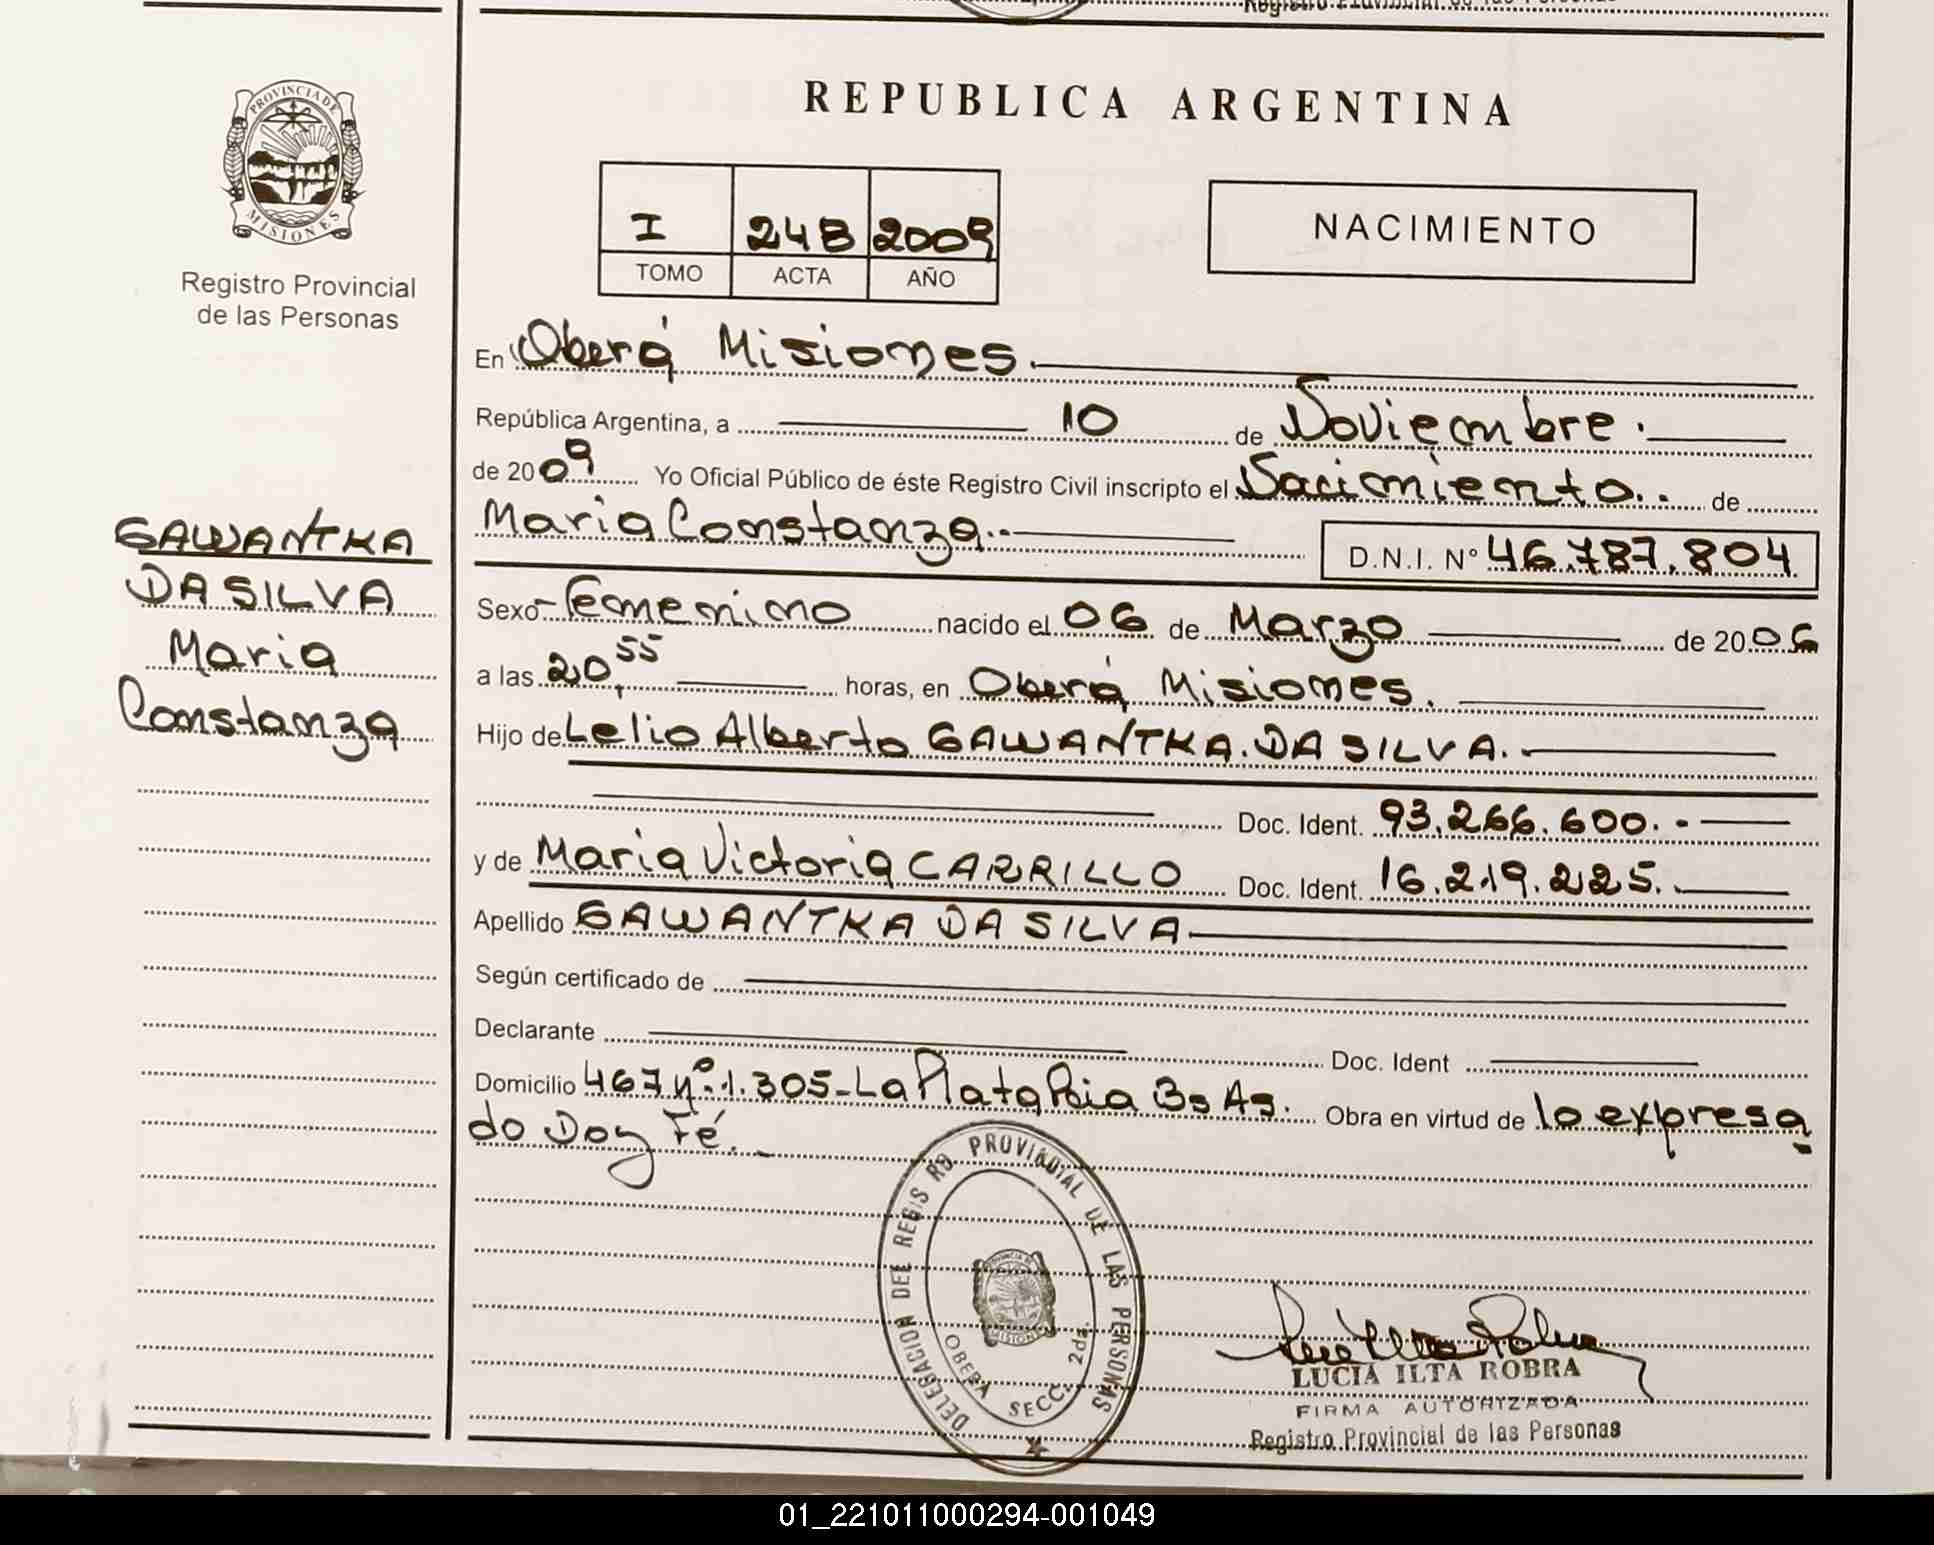 Registro Provincial de las Personas
PROVINCIA DE
MISIONES
Registro Provincial
de las Personas
GAWANTKA
DA SILVA
Maria
Constanza
REPUBLICA ARGENTINA
I 248 2009
TOMO ACTA AÑO
NACIMIENTO
En Oberá Misiones.
República Argentina, a 10 de Noviembre.
de 2009 Yo Oficial Público de éste Registro Civil inscripto el Nacimiento.. de
Maria Constanza.. D.N.I. Nº 46.787.804
Sexo Femenino nacido el 06 de Marzo de 2006
a las 20,55 horas, en Oberá Misiones.
Hijo de Lelio Alberto GAWANTKA. DA SILVA.
Doc. Ident. 93.266.600.-
y de Maria Victoria CARRILLO Doc. Ident. 16.219.225.
Apellido GAWANTKA DA SILVA
Según certificado de
Declarante Doc. Ident
Domicilio 467 Nº 1.305-La Plata Pcia Bs As. Obra en virtud de lo expresa
do Doy Fé.
DELEGACION DEL REGISTRO PROVINCIAL DE LAS PERSONAS
PROVINCIA DE
MISIONES
OBERA SECC. 2da.
LUCIA ILTA ROBRA
FIRMA AUTORIZADA
Registro Provincial de las Personas
01_221011000294-001049